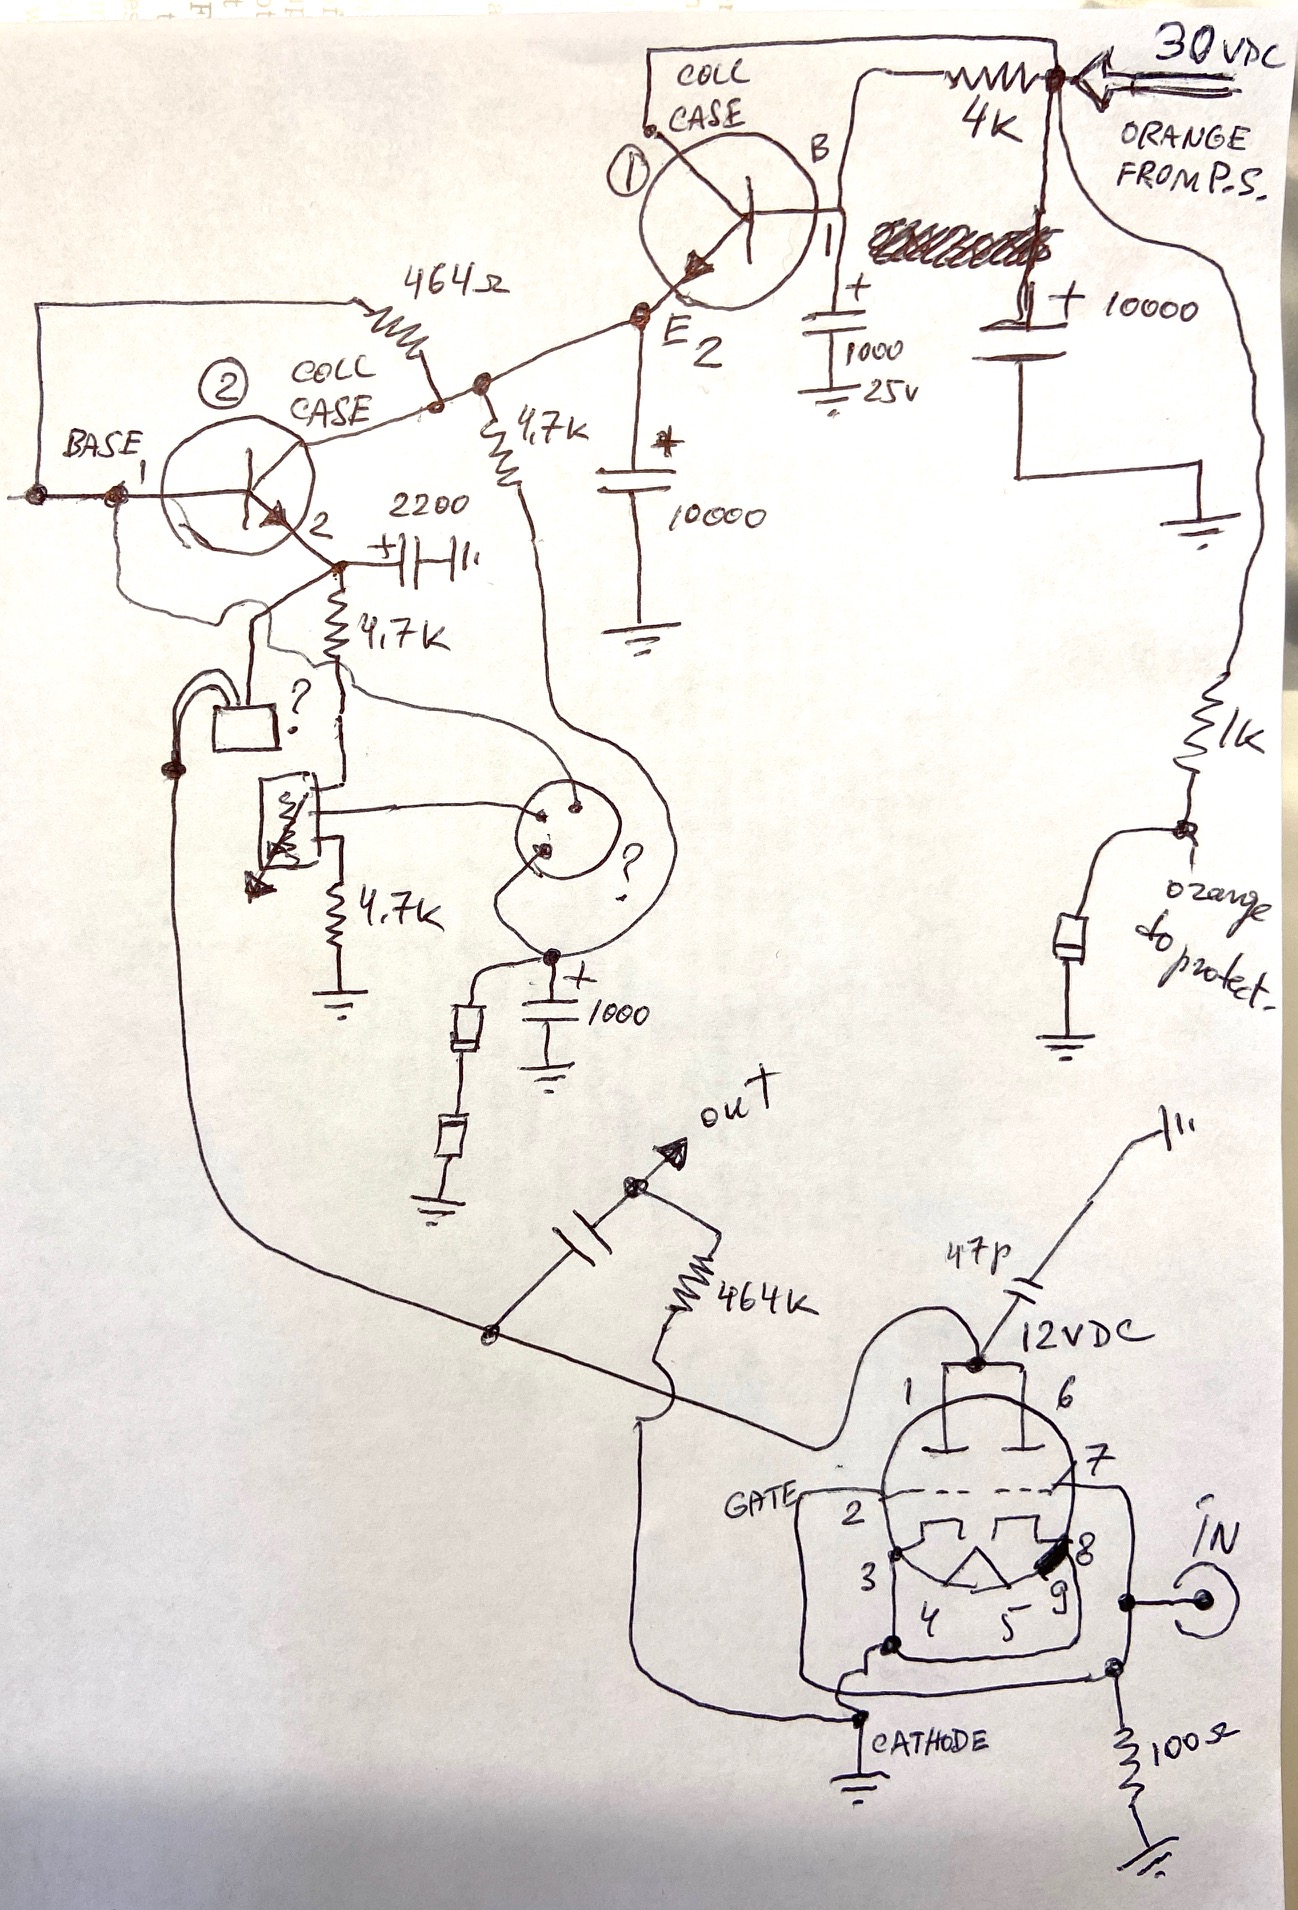 30 VDC
COLL
CASE
B
4K
ORANGE
FROM P.S.
1
1
464Ω
+
10000
+
1000
25V
E
2
2
COLL
CASE
4,7K
BASE
1
+
10000
2
2200
+
4,7K
?
1K
?
orange
to protect.
4,7K
+
1000
OUT
47p
464K
12VDC
1
6
7
GATE
2
IN
8
3
9
4
5
CATHODE
100Ω